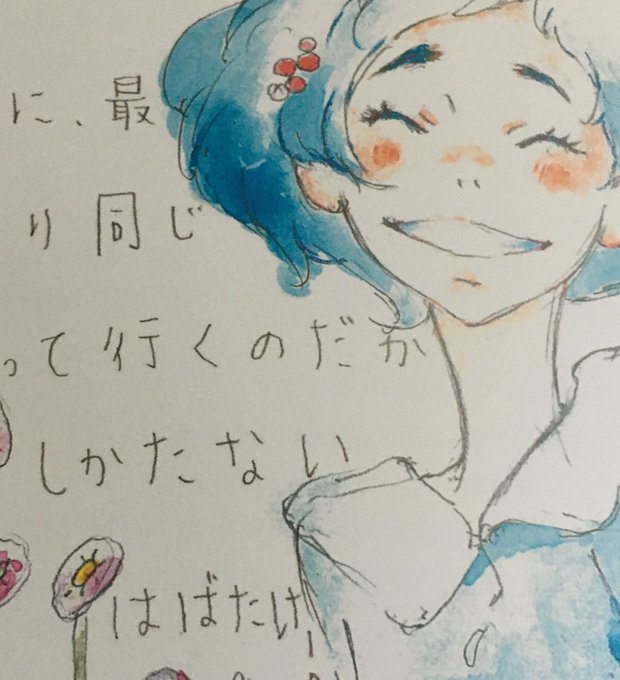 に、最
り同じ
って行くのだか
しかたない
はばたけ